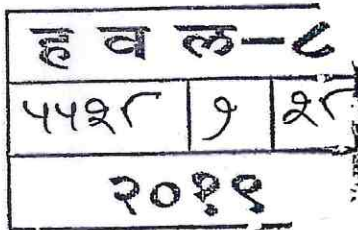 ह व ल-८
५५२८ १ २८
२०१९